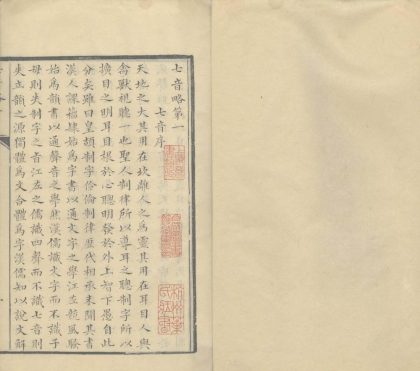 七音略第一
七音序
天地之大其用在坎離人之爲靈其用在耳目人與
禽獸視聽一也聖人制律所以導耳之聰制字所以
擴目之明耳目根於心聰明發於外上智下愚自此
分矣雖曰皇頡制字伶倫制律歷代相承未聞其書
漢人課籀隸始爲字書以通文字之學江左競風騷
始爲韻書以通聲音之學然漢儒識文字而不識子
母則失制字之旨江左之儒識四聲而不識七音則
失立韻之源獨體爲文合體爲字漢儒知以說文解